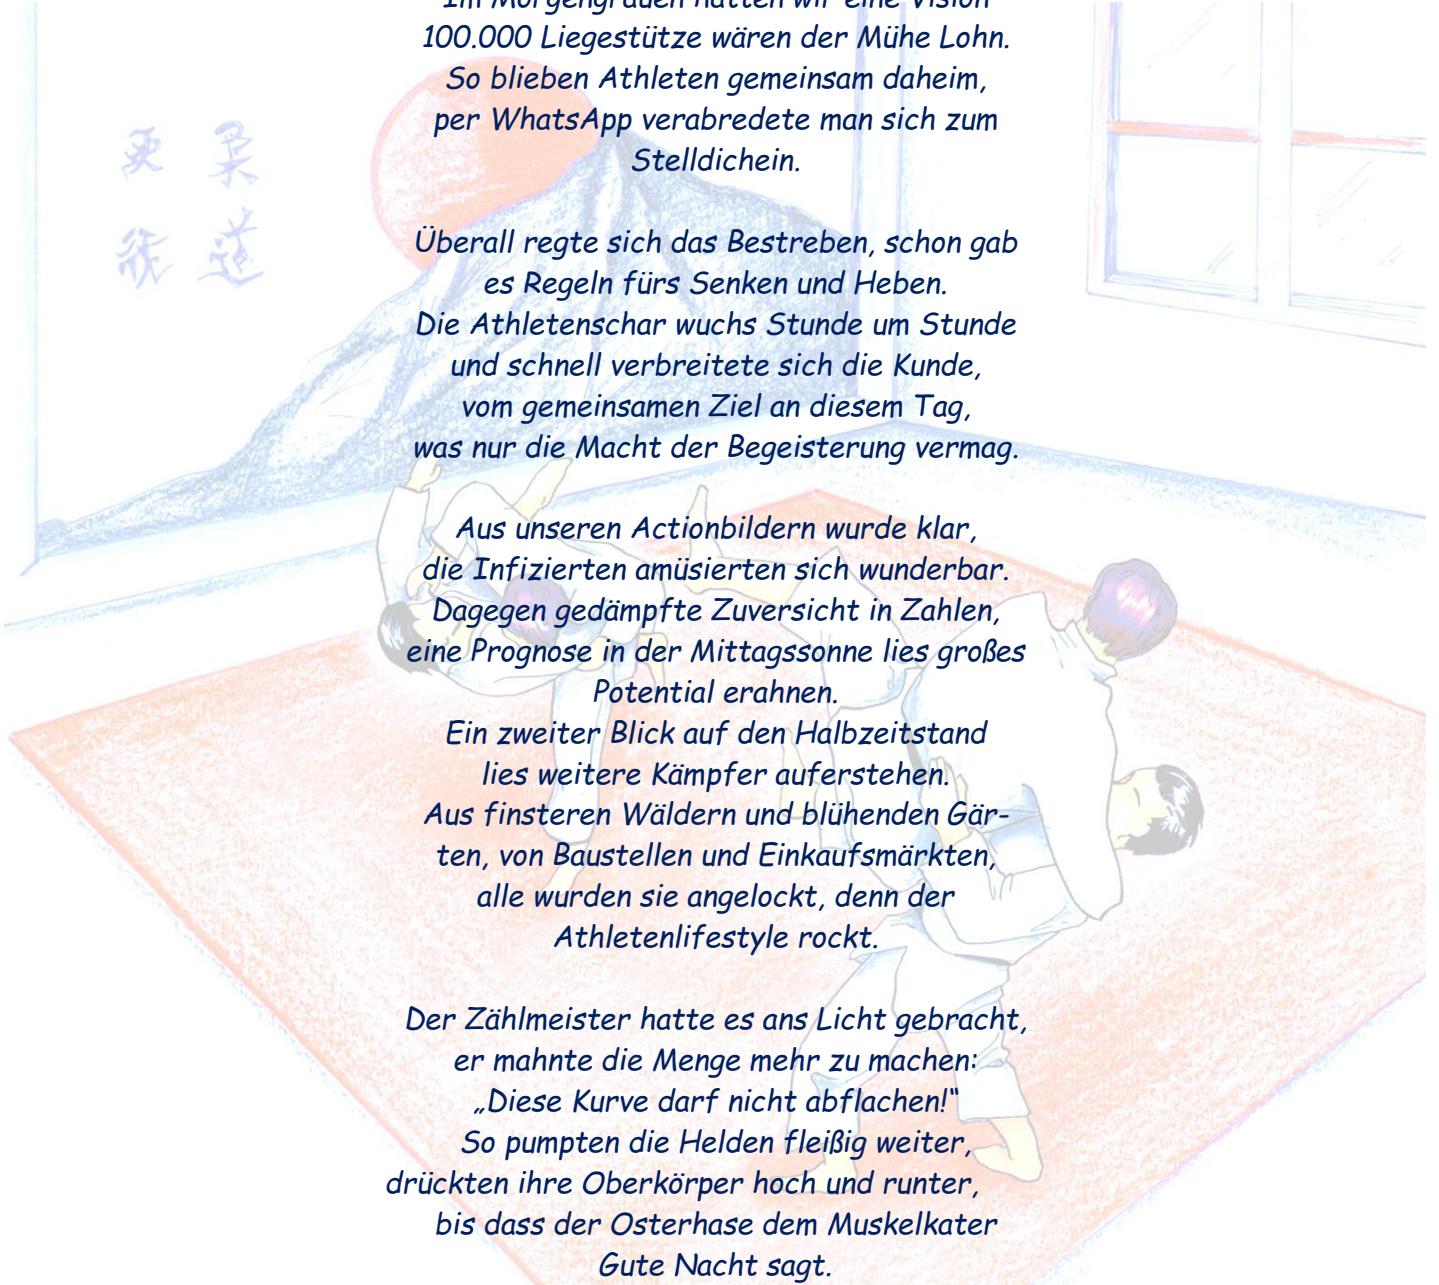 Im Morgengrauen hatten wir eine Vision
100.000 Liegestütze wären der Mühe Lohn.
So blieben Athleten gemeinsam daheim,
per WhatsApp verabredete man sich zum
Stelldichein.
Überall regte sich das Bestreben, schon gab
es Regeln fürs Senken und Heben.
Die Athletenschar wuchs Stunde um Stunde
und schnell verbreitete sich die Kunde,
vom gemeinsamen Ziel an diesem Tag,
was nur die Macht der Begeisterung vermag.
Aus unseren Actionbildern wurde klar,
die Infizierten amüsierten sich wunderbar.
Dagegen gedämpfte Zuversicht in Zahlen,
eine Prognose in der Mittagssonne lies großes
Potential erahnen.
Ein zweiter Blick auf den Halbzeitstand
lies weitere Kämpfer auferstehen.
Aus finsteren Wäldern und blühenden Gär-
ten, von Baustellen und Einkaufsmärkten,
alle wurden sie angelockt, denn der
Athletenlifestyle rockt.
Der Zählmeister hatte es ans Licht gebracht,
er mahnte die Menge mehr zu machen:
„Diese Kurve darf nicht abflachen!“
So pumpten die Helden fleißig weiter,
drückten ihre Oberkörper hoch und runter,
bis dass der Osterhase dem Muskelkater
Gute Nacht sagt.